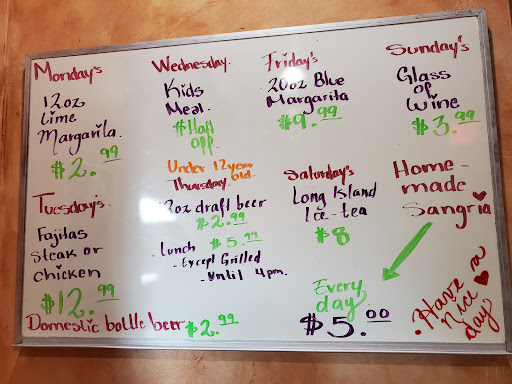 Monday's
12oz
Lime
Margarita.
$2.99
Tuesday's.
Fajitas
Steak or
chicken
$12.99
Domestic bottle beer $2.99
Wednesday.
Kids
Meal.
$Half
off.
Under 12year
old.
Thursday
12oz draft beer
$2.99
. Lunch $5.99
- Except Grilled
- Until 4pm.
Friday's
20oz Blue
Margarita
$9.99
Saturday's
Long Island
Ice-tea
$8
Every
day.
$5.00
Sunday's
Glass
of
Wine
$3.99
Home-
made
Sangria
. Have a
nice
day